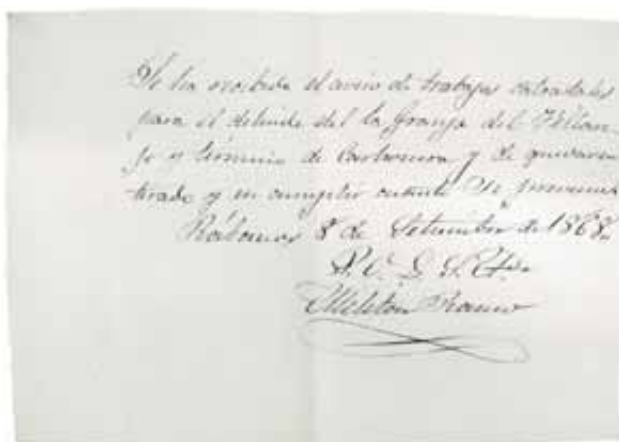 Se ha recibido el aviso de trabajos catastrales
para el deslinde del la Granja del Villan-
jo y termino de Carbonera y de quedar en-
terado y en cumplir cuanto se previene
Rábanos 8 de Setiembre de 1868
P. A. D. S. R. Hdo
Meliton Ramo